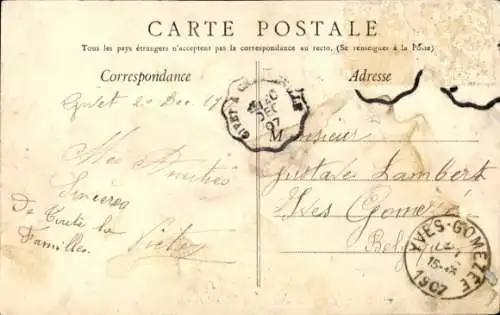 CARTE POSTALE
Tous les pays étrangers n'acceptent pas la correspondance au recto. (Se renseigner à la Poste)
Correspondance
Adresse
Givet 20 Dec.
GIVET A
20
DEC
07
Monsieur
Gustave Lambert
Yves Gomezée
Belg
Mes Amitiés
Sincères
De toute la
Familles.
Victor
YVES-GOMEZEE
1907